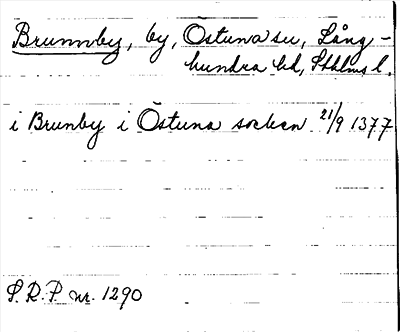 Brunnby, by, Östuna sn, Lång-
hundra hd, Sthlms l.
i Brunby i Östuna socken 21/9 1377
S.R.P. nr. 1290